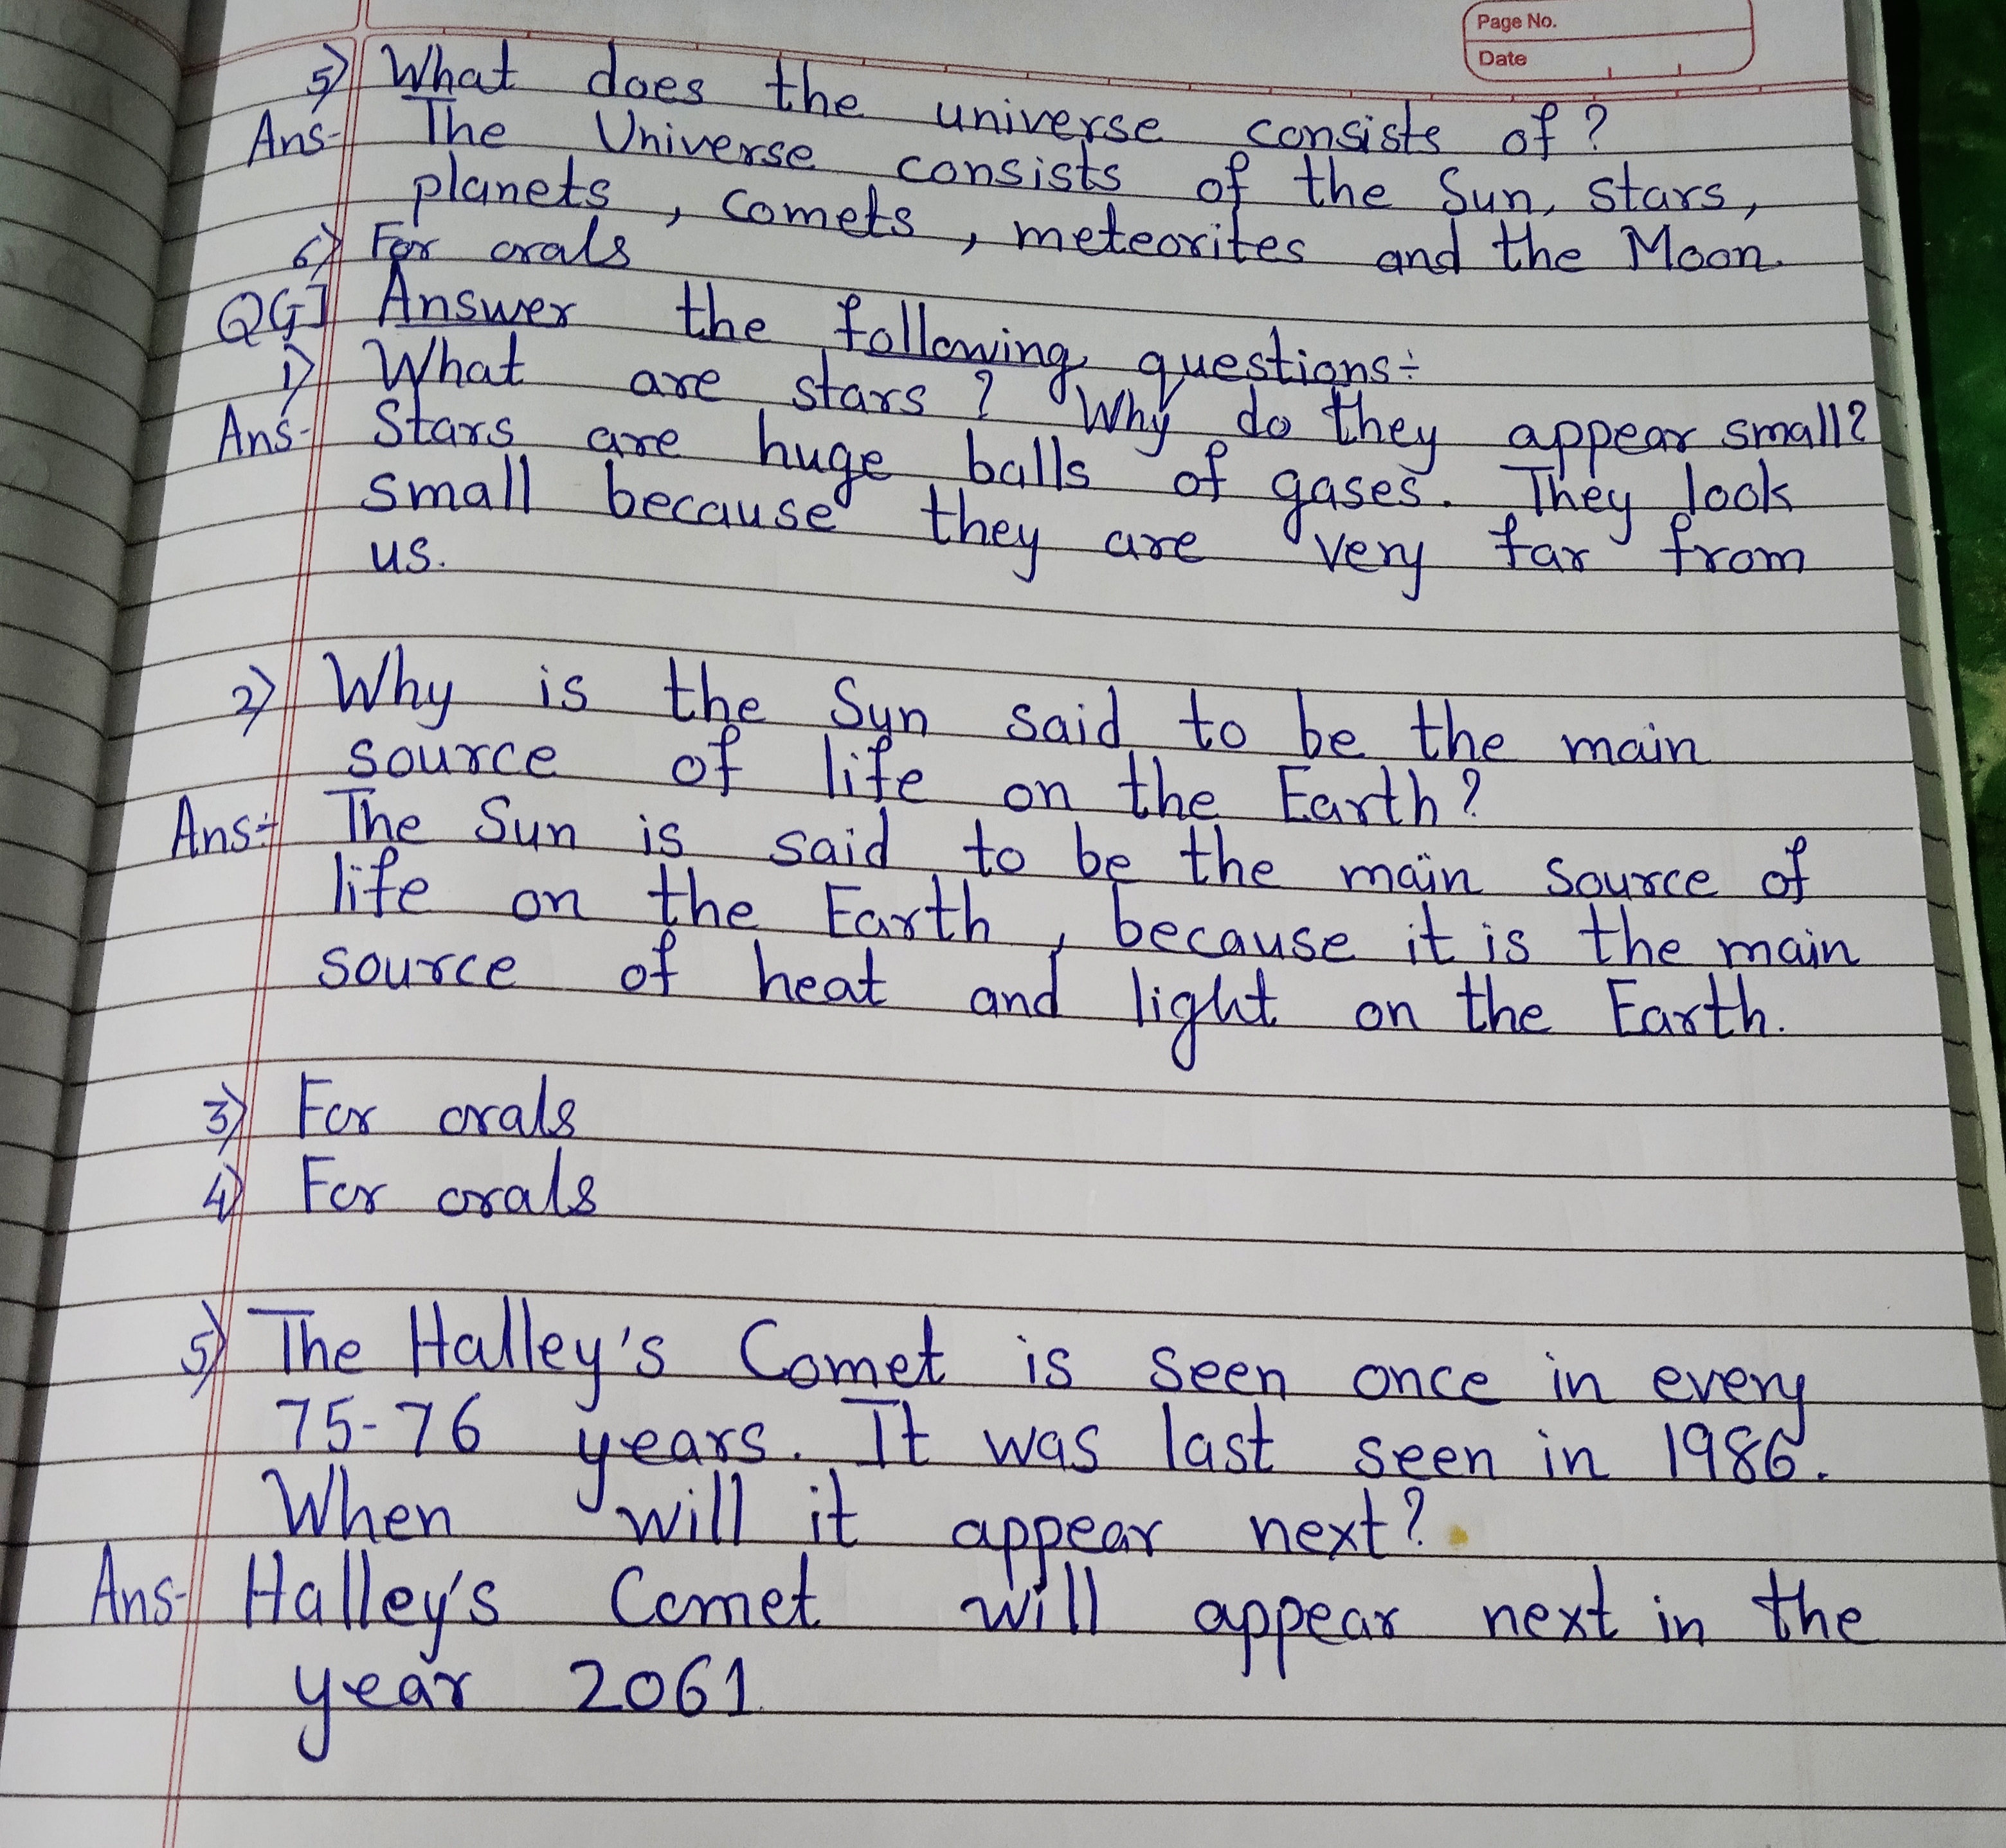 Page No.
Date
5) What does the universe consists of?
Ans- The Universe consists of the Sun, stars,
planets, comets, meteorites and the Moon.
6) For orals
QG] Answer the following questions÷
1) What are stars? Why do they appear small?
Ans- Stars are huge balls of gases. They look
small because they are very far from
us.
2) Why is the Sun said to be the main
source of life on the Earth?
Ans÷ The Sun is said to be the main source of
life on the Earth, because it is the main
source of heat and light on the Earth.
3) For orals
4) For orals
5) The Halley's Comet is seen once in every
75-76 years. It was last seen in 1986.
When will it appear next?
Ans- Halley's Comet will appear next in the
year 2061.